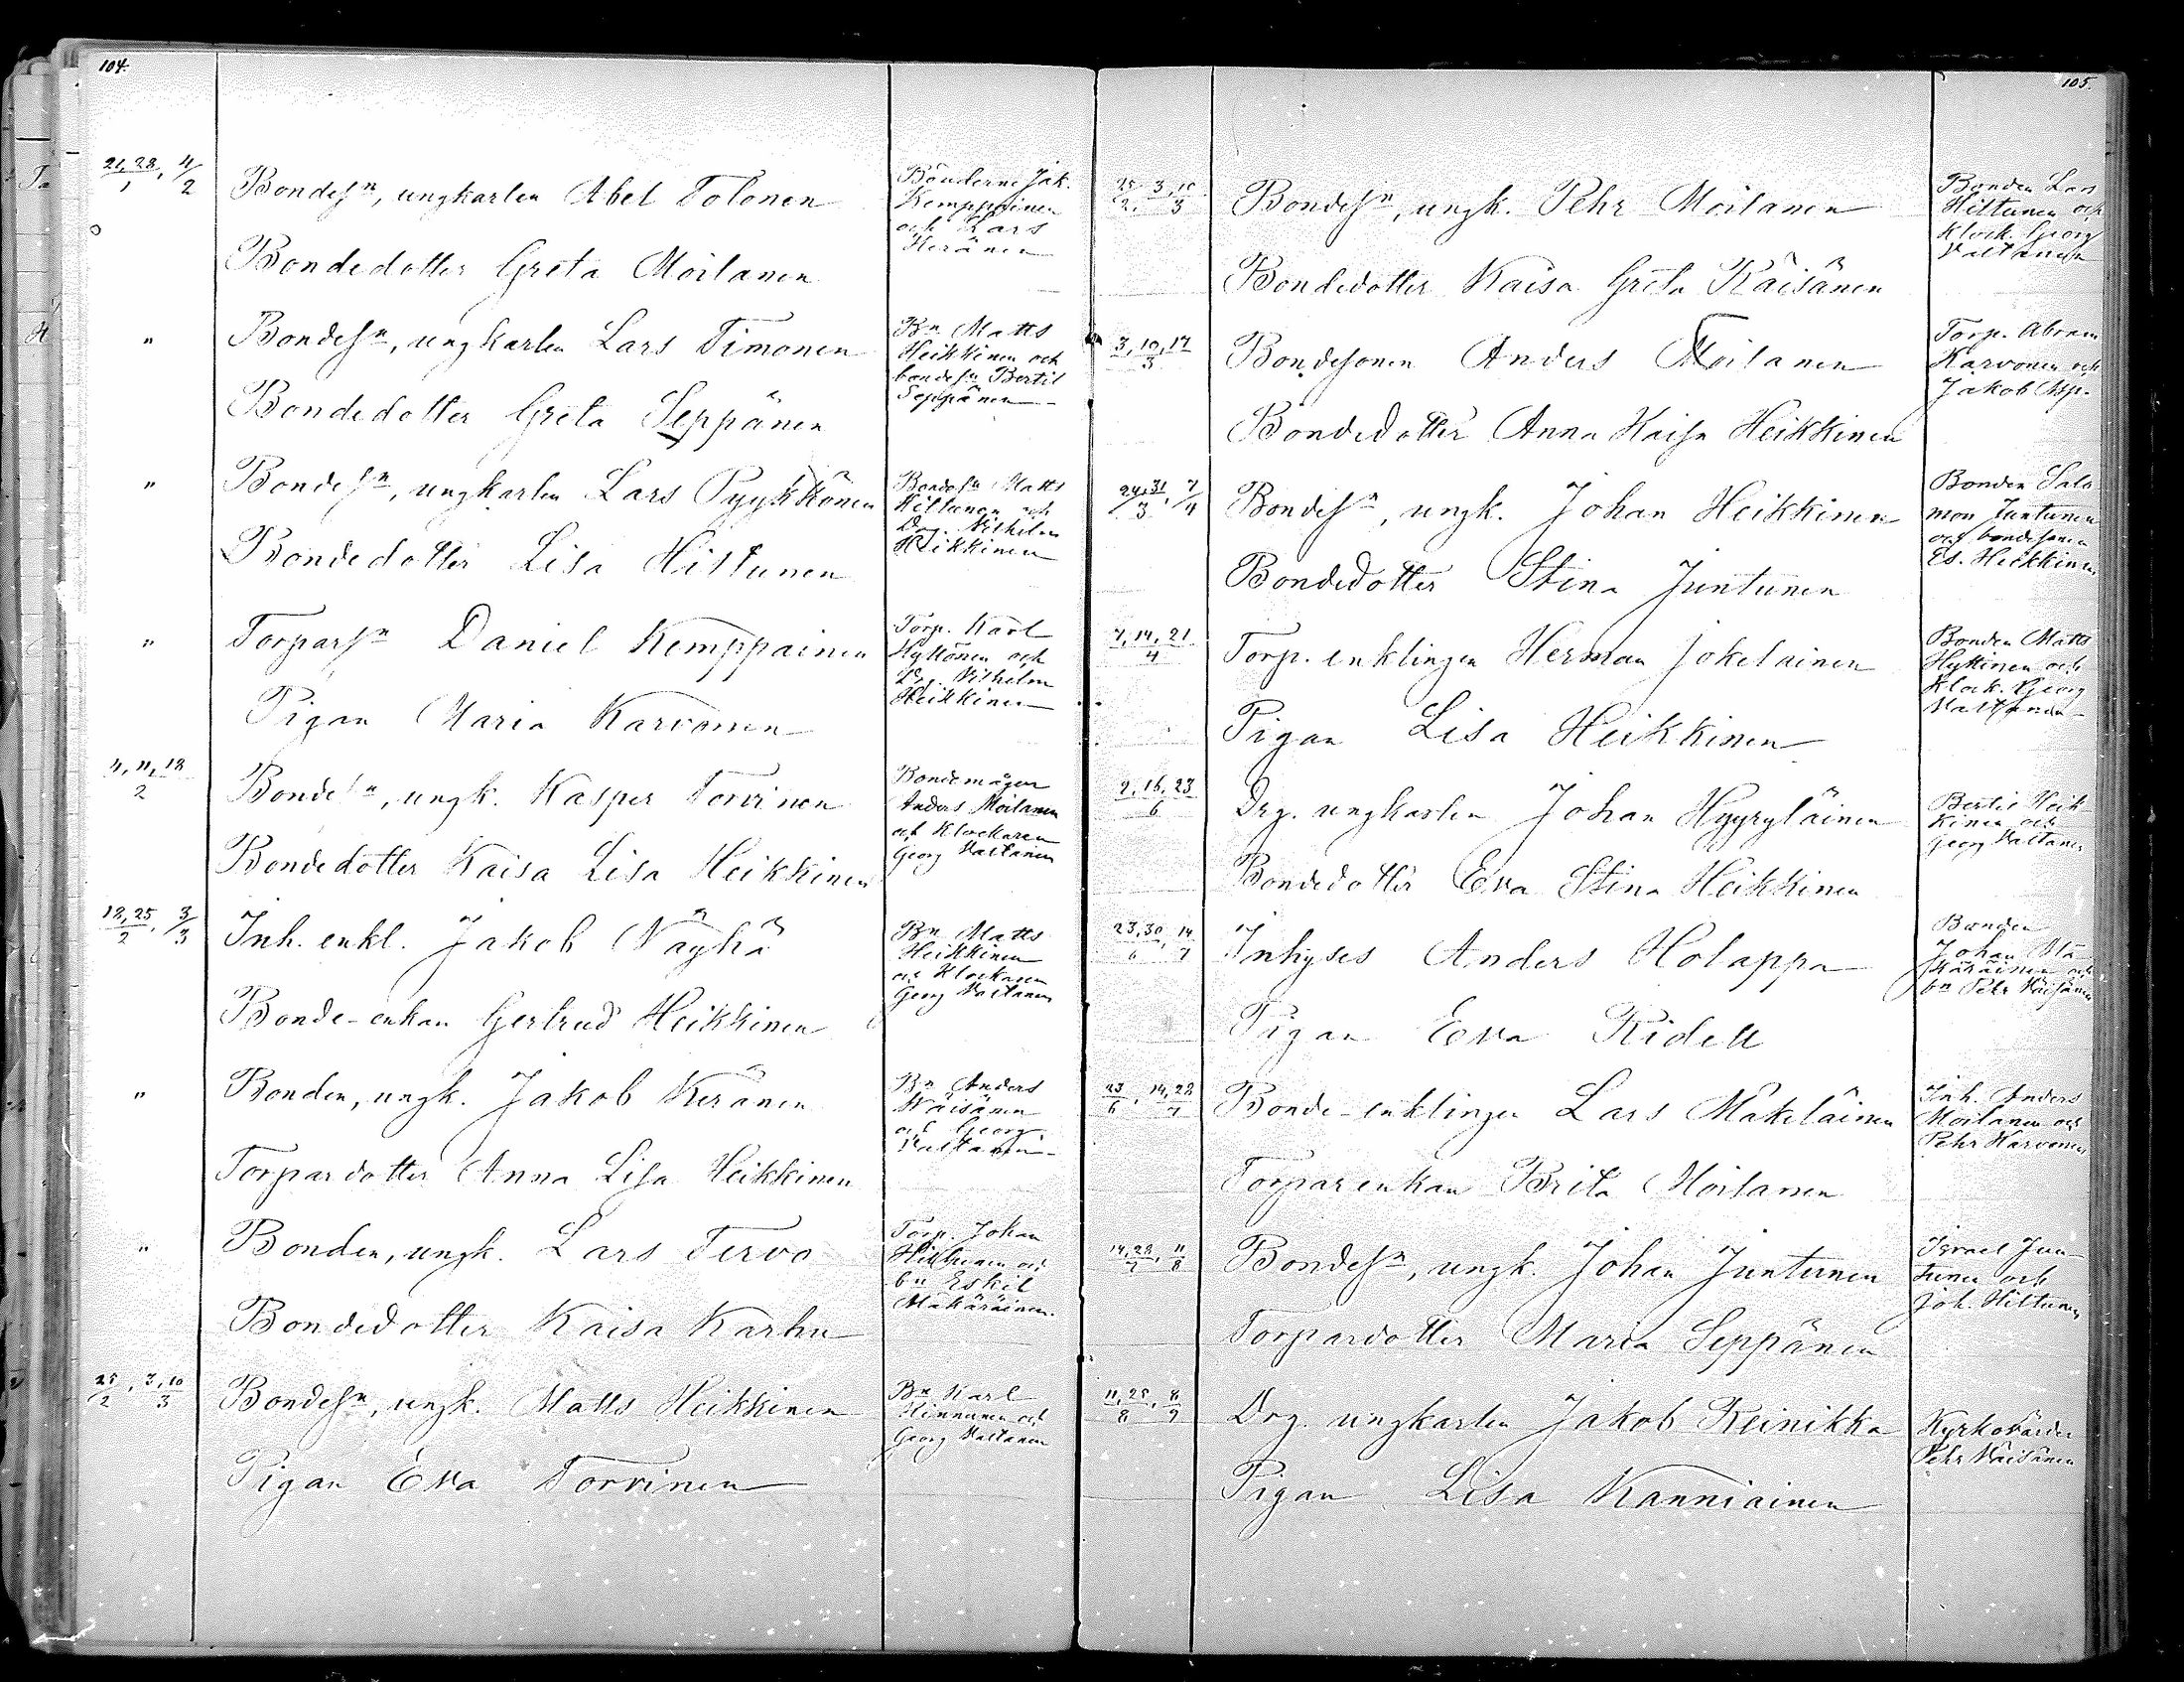 104.
21, 28/1, 4/2
Bondesn, ungkarlen Abel Tolonen
Bondedotter Greta Moilanen
Bönderne Jak.
Kemppainen
och Lars
Keränen
"
Bondesn, ungkarlen Lars Timonen
Bondedotter Greta Seppänen
Bn Matts
Heikkinen och
bondesn Bertil
Seppänen
"
Bondesn, ungkarlen Lars Pyykkönen
Bondedotter Lisa Hiltunen
Bondesn Matts
Hiltunen och
Drg. Vilhelm
Heikkinen
"
Torparsn Daniel Kemppainen
Pigan Maria Karvonen
Torp. Karl
Hyttönen och
Drg. Vilhelm
Heikkinen
4, 11, 18/2
Bondesn, ungk. Kasper Torvinen
Bondedotter Kaisa Lisa Heikkinen
Bondemågen
Anders Moilanen
och Klockaren
Georg Valtanen
18, 25/2, 3/3
Inh. enkl. Jakob Näyhä
Bonde-enkan Gertrud Heikkinen
Bn Matts
Heikkinen
och Klockaren
Georg Valtanen
"
Bonden, ungk. Jakob Keränen
Torpardotter Anna Lisa Heikkinen
Bn Anders
Väisänen
och Georg
Valtanen
"
Bonden, ungk. Lars Tervo
Bondedotter Kaisa Karhu
Torp. Johan
Hiltunen och
bn Eskil
Mäkäräinen.
25/2, 3, 10/3
Bondesn, ungk. Matts Heikkinen
Pigan Eva Torvinen
Bn Karl
Kinnunen och
Georg Valtanen
105.
25/2, 3, 10/3
Bondesn, ungk. Pehr Moilanen
Bondedotter Kaisa Greta Räisänen
Bonden Lars
Hiltunen och
Klock. Georg
Valtanen
3, 10, 17/3
Bondesonen Anders Moilanen
Bondedotter Anna Kaisa Heikkinen
Torp. Abram
Karvonen och
Jakob Asp.
24, 31/3, 7/4
Bondesn, ungk. Johan Heikkinen
Bondedotter Stina Juntunen
Bonden Salo-
mon Juntunen
och bondesonen
Es. Heikkinen
7, 14, 21/4
Torp. enklingen Herman Jokelainen
Pigan Lisa Heikkinen
Bonden Matts
Hyttinen och
Klock. Georg
Valtanen
9, 16, 23/6
Drg. ungkarlen Johan Hyyryläinen
Bondedotter Eva Stina Heikkinen
Bertil Heik-
kinen och
Georg Valtanen
23, 30/6, 14/7
Inhyses Anders Holappa
Pigan Eva Ridell
Bonden
Johan Mä-
käräinen och
bn Pehr Väisänen
23/6, 14, 28/7
Bonde-enklingen Lars Mäkeläinen
Torparenkan Brita Moilanen
Inh. Anders
Moilanen och
Pehr Karvonen
14, 28/7, 11/8
Bondesn, ungk. Johan Juntunen
Torpardotter Maria Seppänen
Israel Jun-
tunen och
Joh. Hiltunen
11, 25/8, 8/9
Drg. ungkarlen Jakob Reinikka
Pigan Lisa Kanniainen
Kyrkovärden
Pehr Väisänen